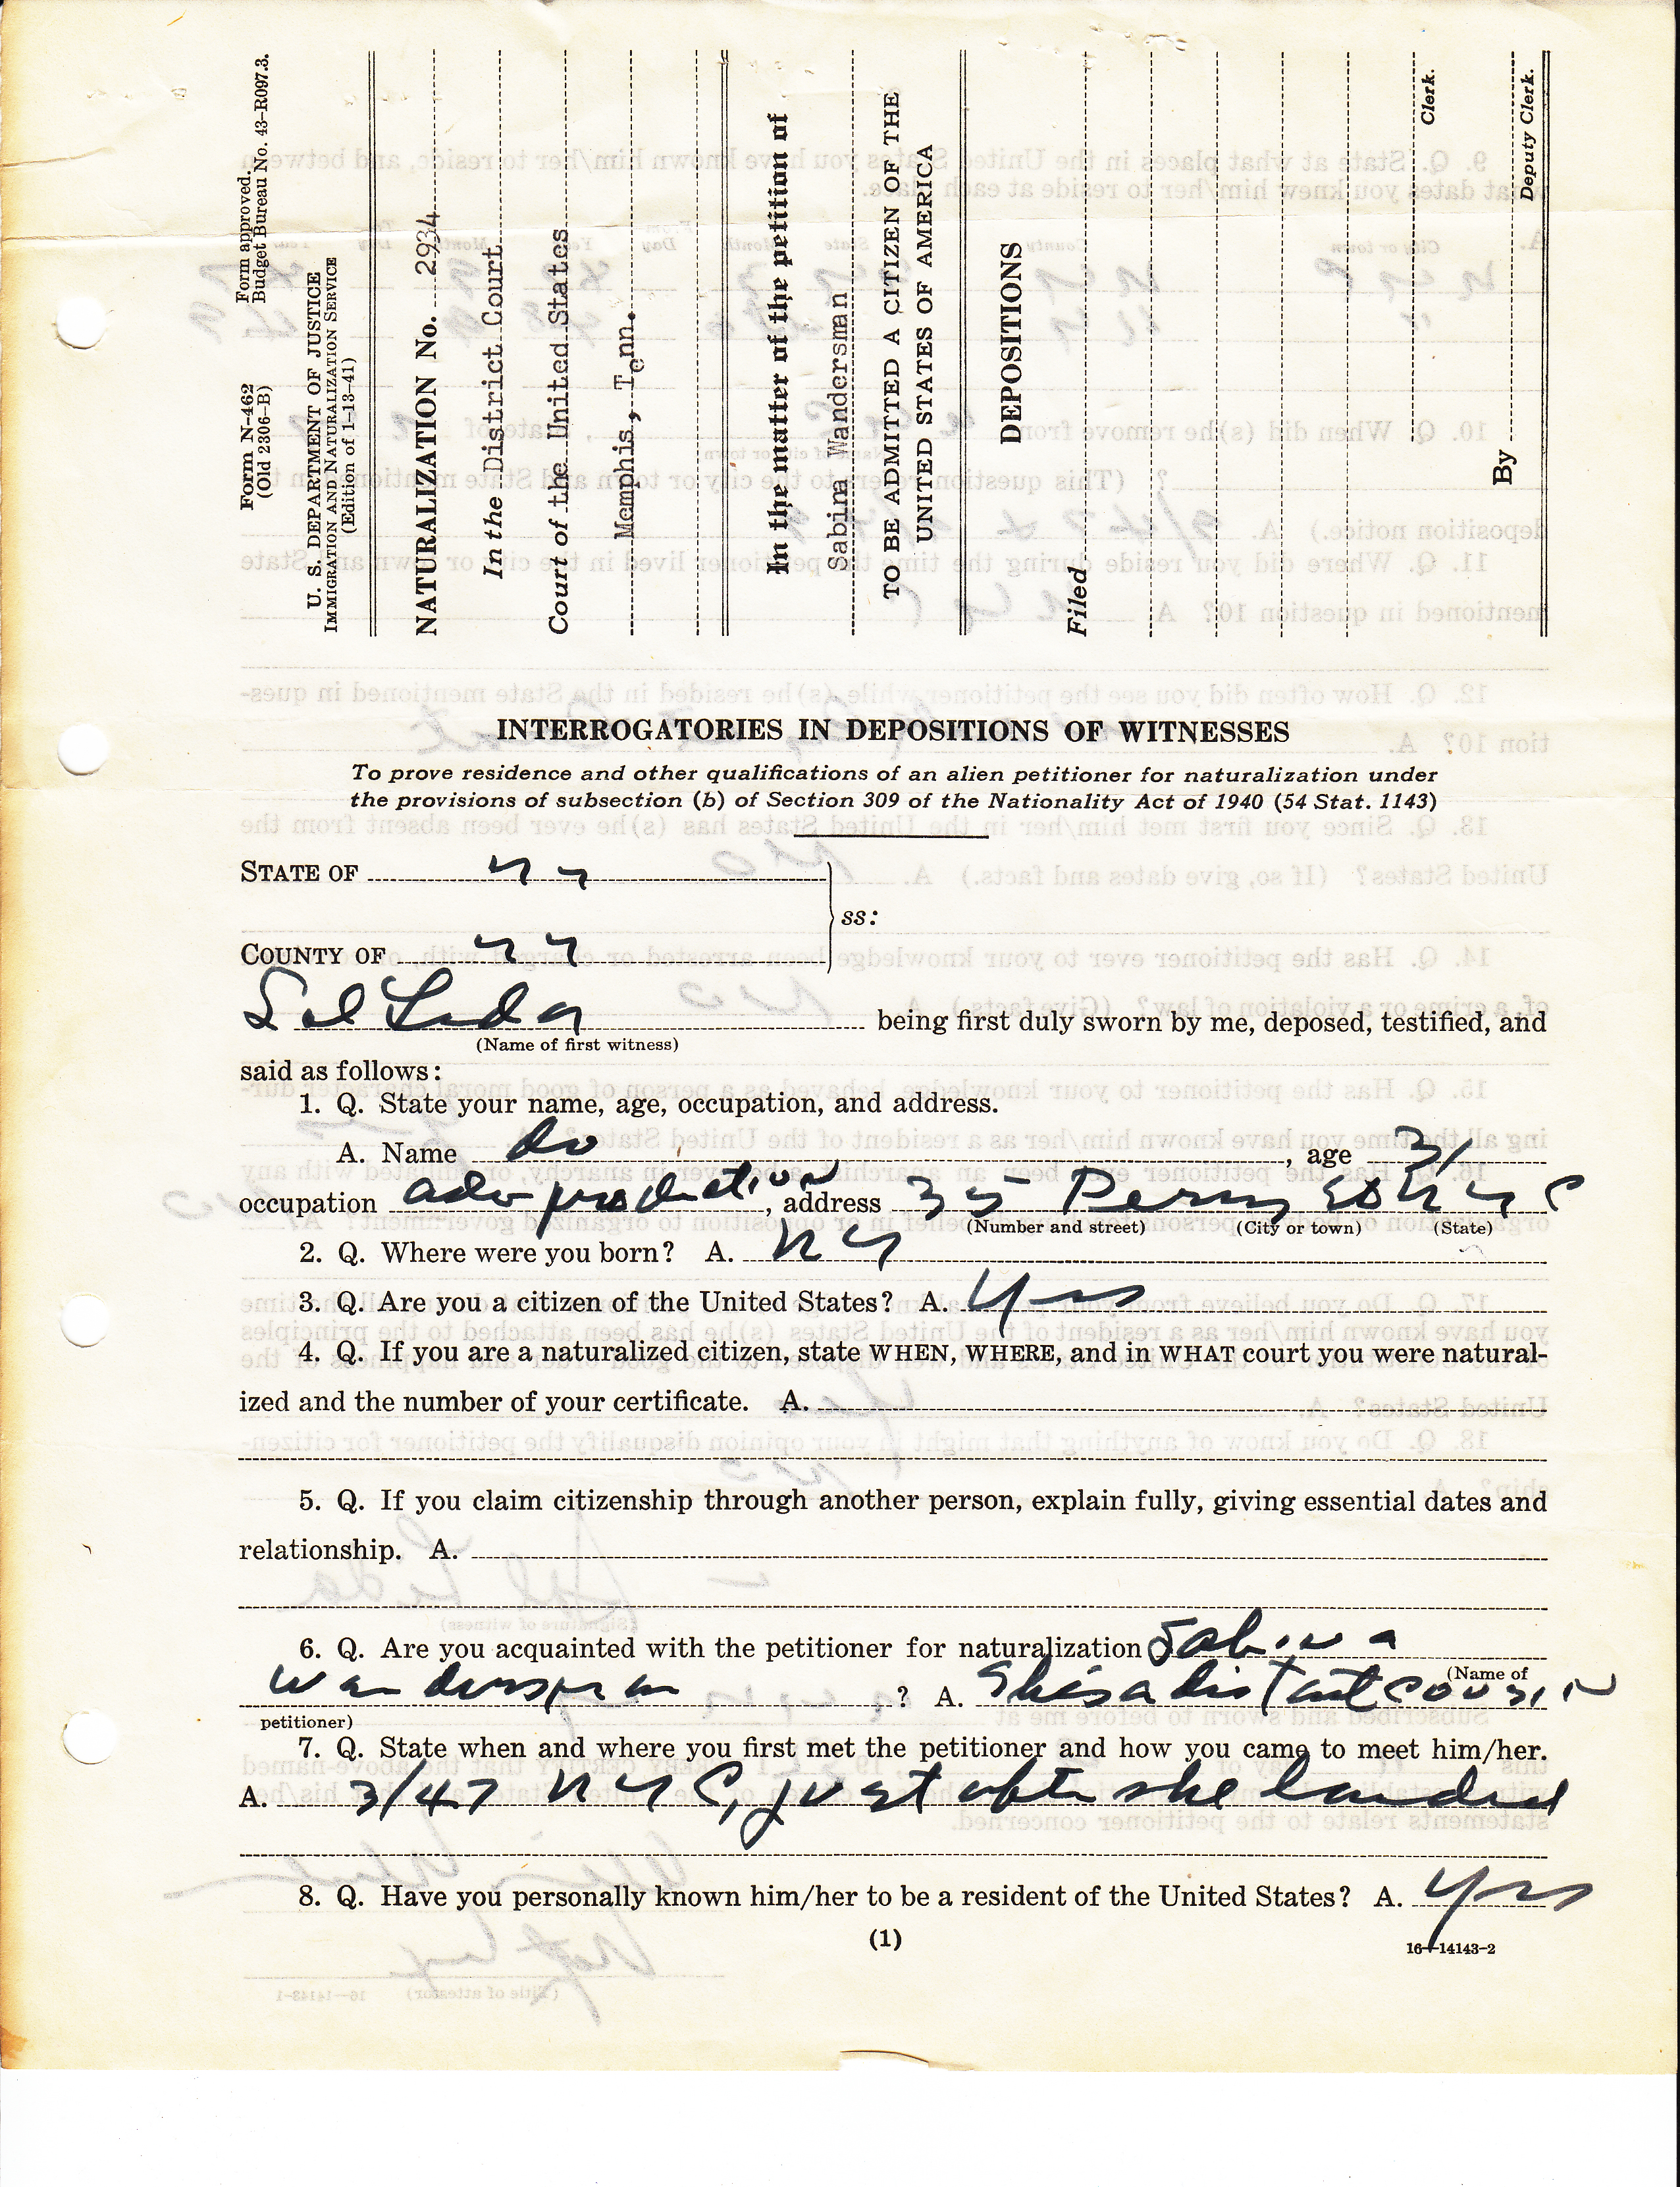 Form N-462
(Old 2306-B)
Form approved.
Budget Bureau No. 43-R097.3.
U. S. DEPARTMENT OF JUSTICE
IMMIGRATION AND NATURALIZATION SERVICE
(Edition of 1-13-41)
NATURALIZATION No. 2934
In the District Court
Court of the United States
Memphis, Tenn.
In the matter of the petition of
Sabina Wandersman
TO BE ADMITTED A CITIZEN OF THE
UNITED STATES OF AMERICA
DEPOSITIONS
Filed
Clerk.
By
Deputy Clerk.
INTERROGATORIES IN DEPOSITIONS OF WITNESSES
To prove residence and other qualifications of an alien petitioner for naturalization under
the provisions of subsection (b) of Section 309 of the Nationality Act of 1940 (54 Stat. 1143)
STATE OF NY
ss:
COUNTY OF NY
Sol Leda being first duly sworn by me, deposed, testified, and
(Name of first witness)
said as follows:
1. Q. State your name, age, occupation, and address.
A. Name do, age 31
occupation adv production, address 35 Perry St NYC
(Number and street) (City or town) (State)
2. Q. Where were you born? A. NY
3. Q. Are you a citizen of the United States? A. Yes
4. Q. If you are a naturalized citizen, state WHEN, WHERE, and in WHAT court you were natural-
ized and the number of your certificate. A.
5. Q. If you claim citizenship through another person, explain fully, giving essential dates and
relationship. A.
6. Q. Are you acquainted with the petitioner for naturalization Sabina
(Name of
Wandersman ? A. She is a distant cousin
petitioner)
7. Q. State when and where you first met the petitioner and how you came to meet him/her.
A. 3/47 NYC, just after she landed
8. Q. Have you personally known him/her to be a resident of the United States? A. Yes
(1)
16-14143-2